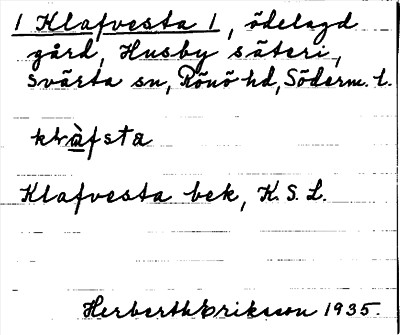 1 Klafvesta 1, ödelagd
gård, Husby säteri,
Svärta sn, Rönö hd, Söderm. l.
klàfsta
Klafvesta bek, K. S. L.
Herberth Eriksson 1935.